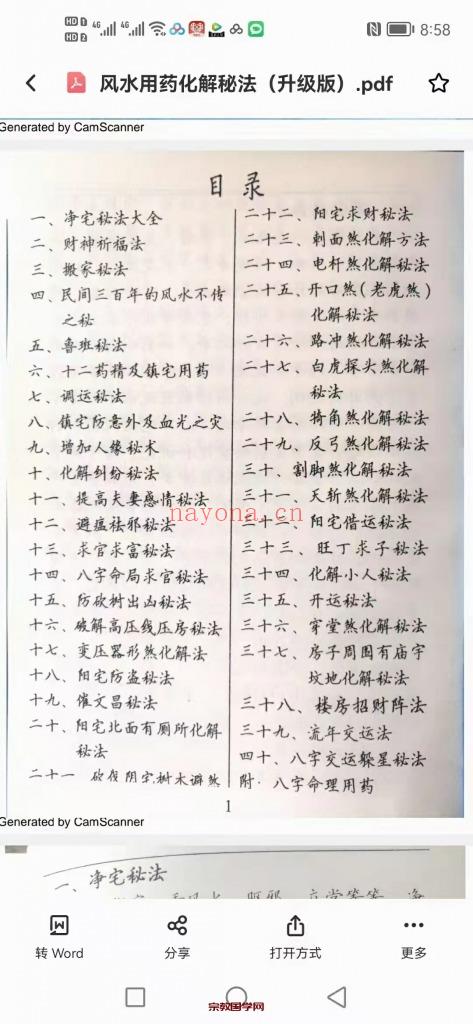 HD 1
HD 2
4G
4G
8:58
风水用药化解秘法（升级版）.pdf
Generated by CamScanner
目录
一、净宅秘法大全
二、财神祈福法
三、搬家秘法
四、民间三百年的风水不传
之秘
五、鲁班秘法
六、十二药精及镇宅用药
七、调运秘法
八、镇宅防意外及血光之灾
九、增加人缘秘术
十、化解纠纷秘法
十一、提高夫妻感情秘法
十二、避瘟祛邪秘法
十三、求官求富秘法
十四、八字命局求官秘法
十五、防砍树出凶秘法
十六、破解高压线压房秘法
十七、变压器形煞化解法
十八、阳宅防盗秘法
十九、催文昌秘法
二十、阳宅北面有厕所化解
秘法
二十一 砍伐阴宅树木避煞
二十二、阳宅求财秘法
二十三、刺面煞化解方法
二十四、电杆煞化解秘法
二十五、开口煞（老虎煞）
化解秘法
二十六、路冲煞化解秘法
二十七、白虎探头煞化解
秘法
二十八、犄角煞化解秘法
二十九、反弓煞化解秘法
三十、割脚煞化解秘法
三十一、天斩煞化解秘法
三十二、阳宅借运秘法
三十三、旺丁求子秘法
三十四、化解小人秘法
三十五、开运秘法
三十六、穿堂煞化解秘法
三十七、房子周围有庙宇
坟地化解秘法
三十八、楼房招财阵法
三十九、流年交运法
四十、八字交运躲星秘法
附·八字命理用药
nayona.cn
1
Generated by CamScanner
一、净宅秘法
转 Word
分享
打开方式
更多
宗教国学网